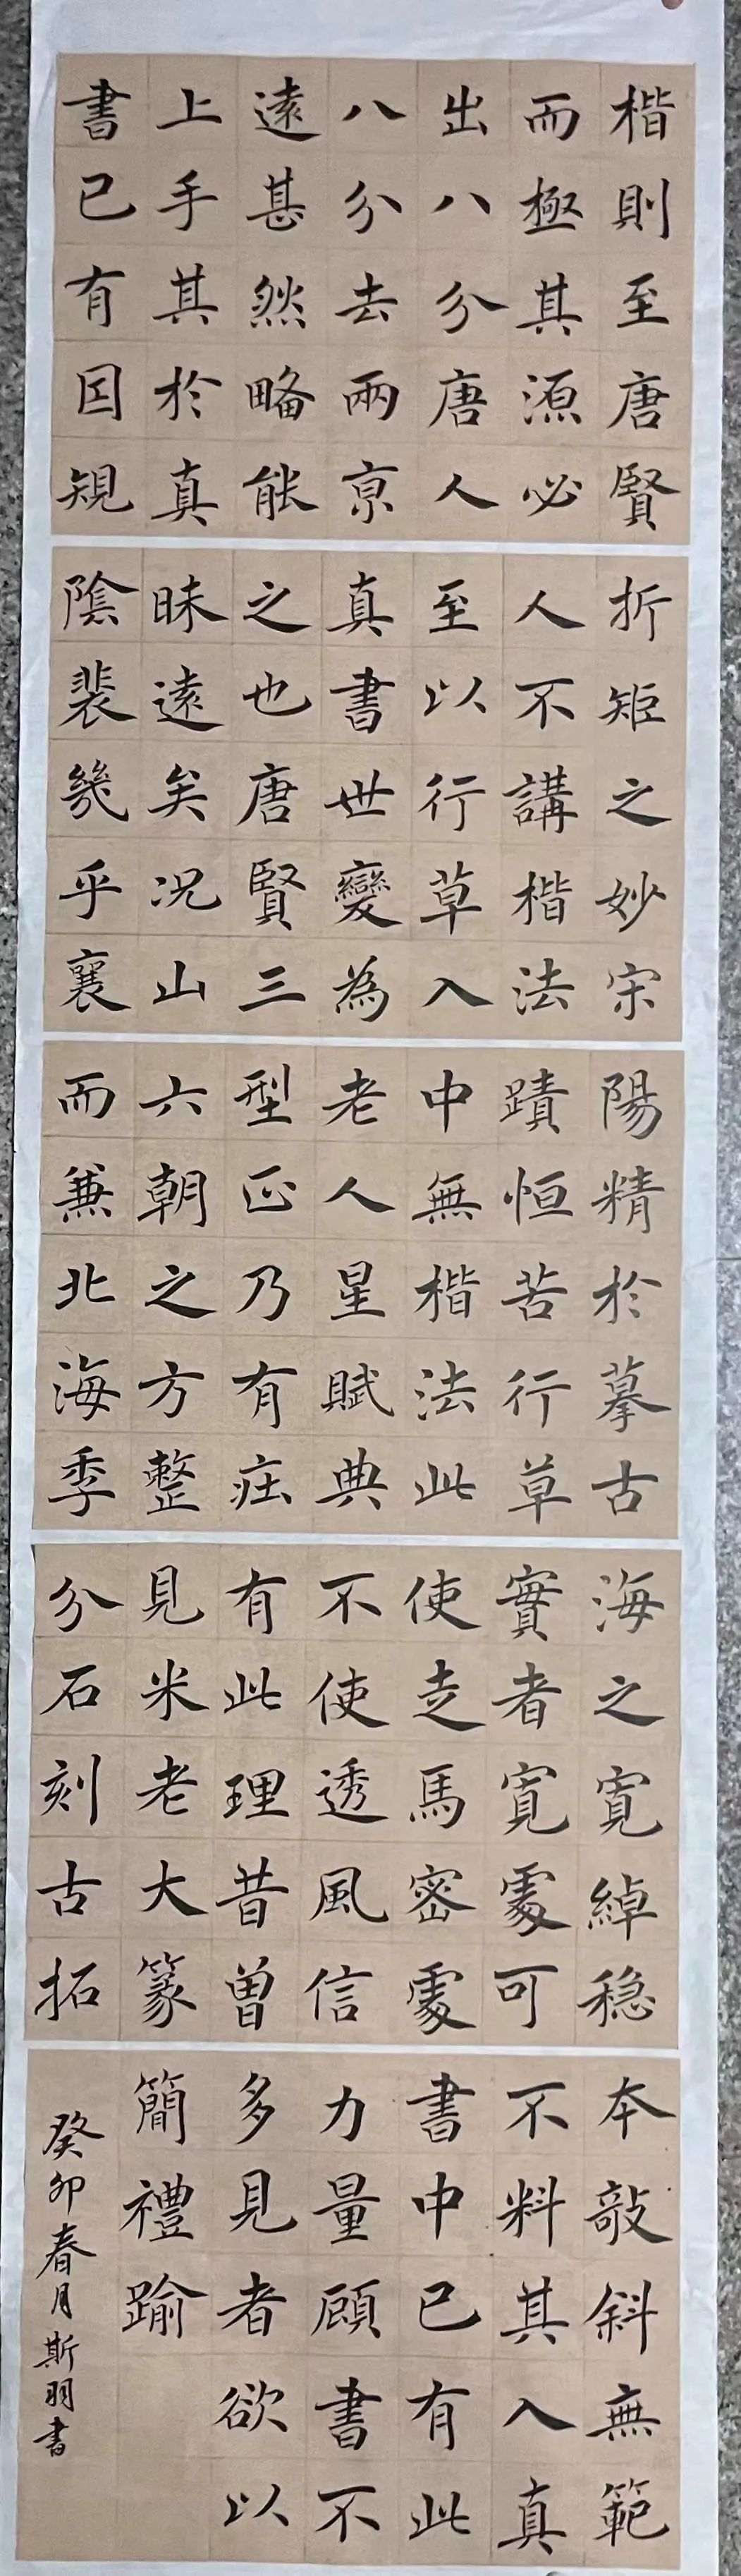 楷則至唐賢
而極其源必
出八分唐人
八分去兩京
遠甚然略能
上手其於真
書已有囙規
折矩之妙宋
人不講楷法
至以行草入
真書世變為
之也唐賢三
昧遠矣況山
陰裴幾乎襄
陽精於摹古
蹟恒苦行草
中無楷法此
老人星賦典
型正乃有㽵
六朝之方整
而兼北海季
海之寬綽穩
實者寬處可
使走馬密處
不使透風信
有此理昔曾
見米老大篆
分石刻古拓
本敲斜無範
不料其入真
書中已有此
力量顧書不
多見者欲以
簡禮踰
癸卯春月斯羽書